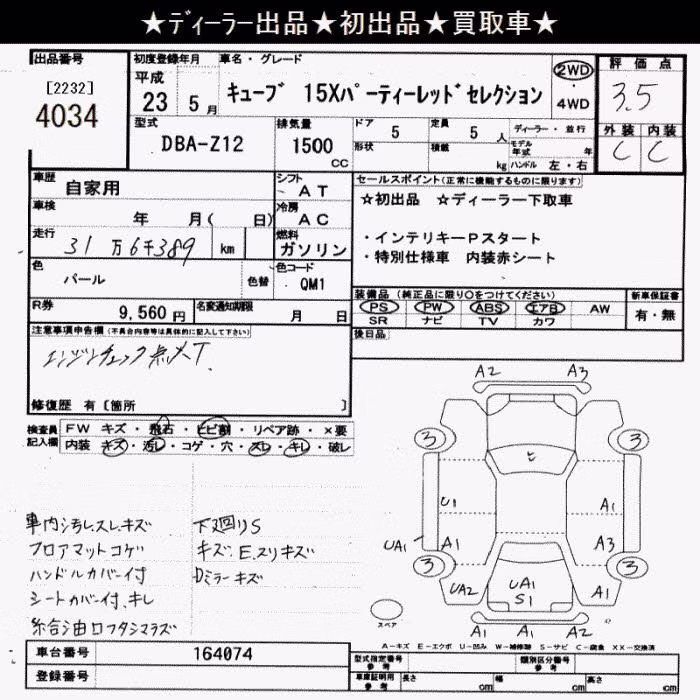 ★ディーラー出品★初出品★買取車★
出品番号
[2232]
4034
初度登録年月
平成
23 5月
車名・グレード
キューブ 15Xパーティーレッドセレクション
2WD
・
4WD
評価点
3.5
外装 内装
C C
型式
DBA-Z12
排気量
1500
CC
ドア
5
形状
定員
5 人
積載
kg
ディーラー・並行
モデル年式 年
ハンドル 左・右
車歴
自家用
シフト
AT
車検
年 月( 日)
冷房
AC
走行
31万6千389 km
燃料
ガソリン
色
パール
色替
色コード
QM1
R券
9,560円
名変通知期限
月 日
セールスポイント(正常に機能するものに限ります)
☆初出品 ☆ディーラー下取車
・インテリキーPスタート
・特別仕様車 内装赤シート
装備品(純正品に限り○をつけてください)
PS PW ABS エアB AW
SR ナビ TV カワ
新車保証書
有・無
後日品
注意事項申告欄(不具合内容等は具体的に記入して下さい)
エンジンチェック点灯
修復歴 有〔箇所 〕
検査員記入欄
FW キズ・飛石・ヒビ割・リペア跡・×要
内装 キズ・汚レ・コゲ・穴・スレ・キレ・破レ
車内汚レスレキズ
フロアマットコゲ
ハンドルカバー付
シートカバー付、キレ
下廻りS
キズ、E、スリキズ
Dミラーキズ
A2 A3
3 3
ヒ
U1 A1
UA1 A1 A3
3 3
UA2 UA1 A1
S1
A1 A1 A2
スペア
A-キズ E-エクボ U-凹み W-補修跡 S-サビ C-腐食 XX-交換済
車台番号
164074
登録番号
型式指定番号
参考
類別区分番号
参考
車庫証明用
参考
長さ cm
幅 cm
高さ cm